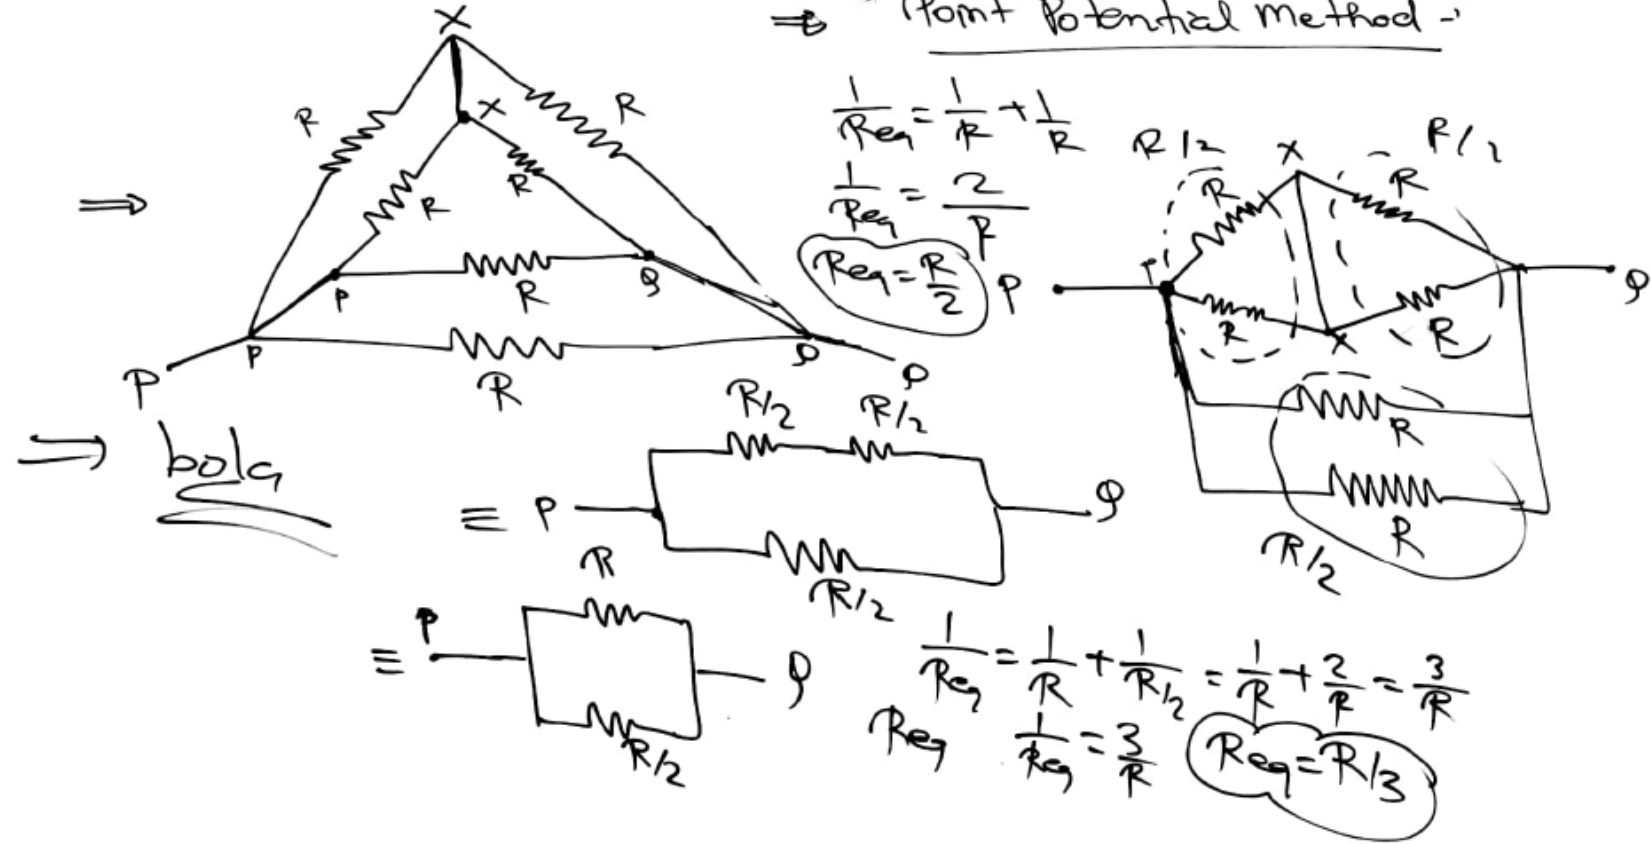 ⇒ "Point Potential Method -'
X
X
R
R
R
R
⇒
P
R
Q
P
P
R
Q
Q
1/Req = 1/R + 1/R
1/Req = 2/R
Req = R/2
R/2
X
R/2
R
R
P
P
Q
R
X
R
R
R
R/2
⇒ bola
R/2 R/2
≡ P
Q
R/2
R
≡ P
Q
R/2
1/Req = 1/R + 1/R/2 = 1/R + 2/R = 3/R
Req 1/Req = 3/R Req = R/3